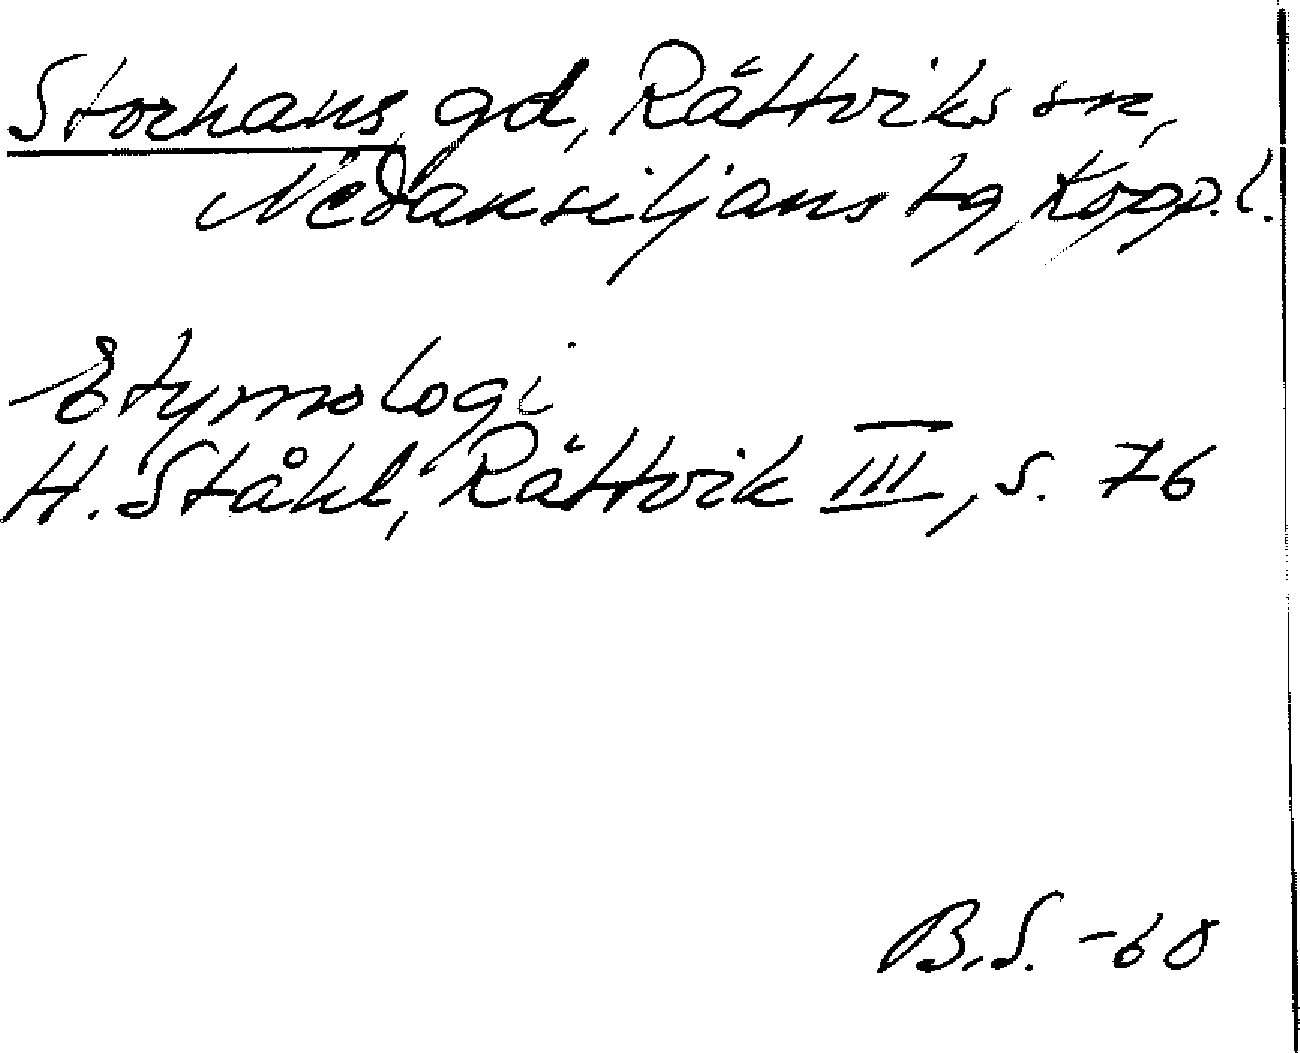 Storhans, gd, Rättviks sn,
Nedansiljans tg, Kopp.l.
Etymologi
H. Ståhl, Rättvik III, s. 76
B.S. -60